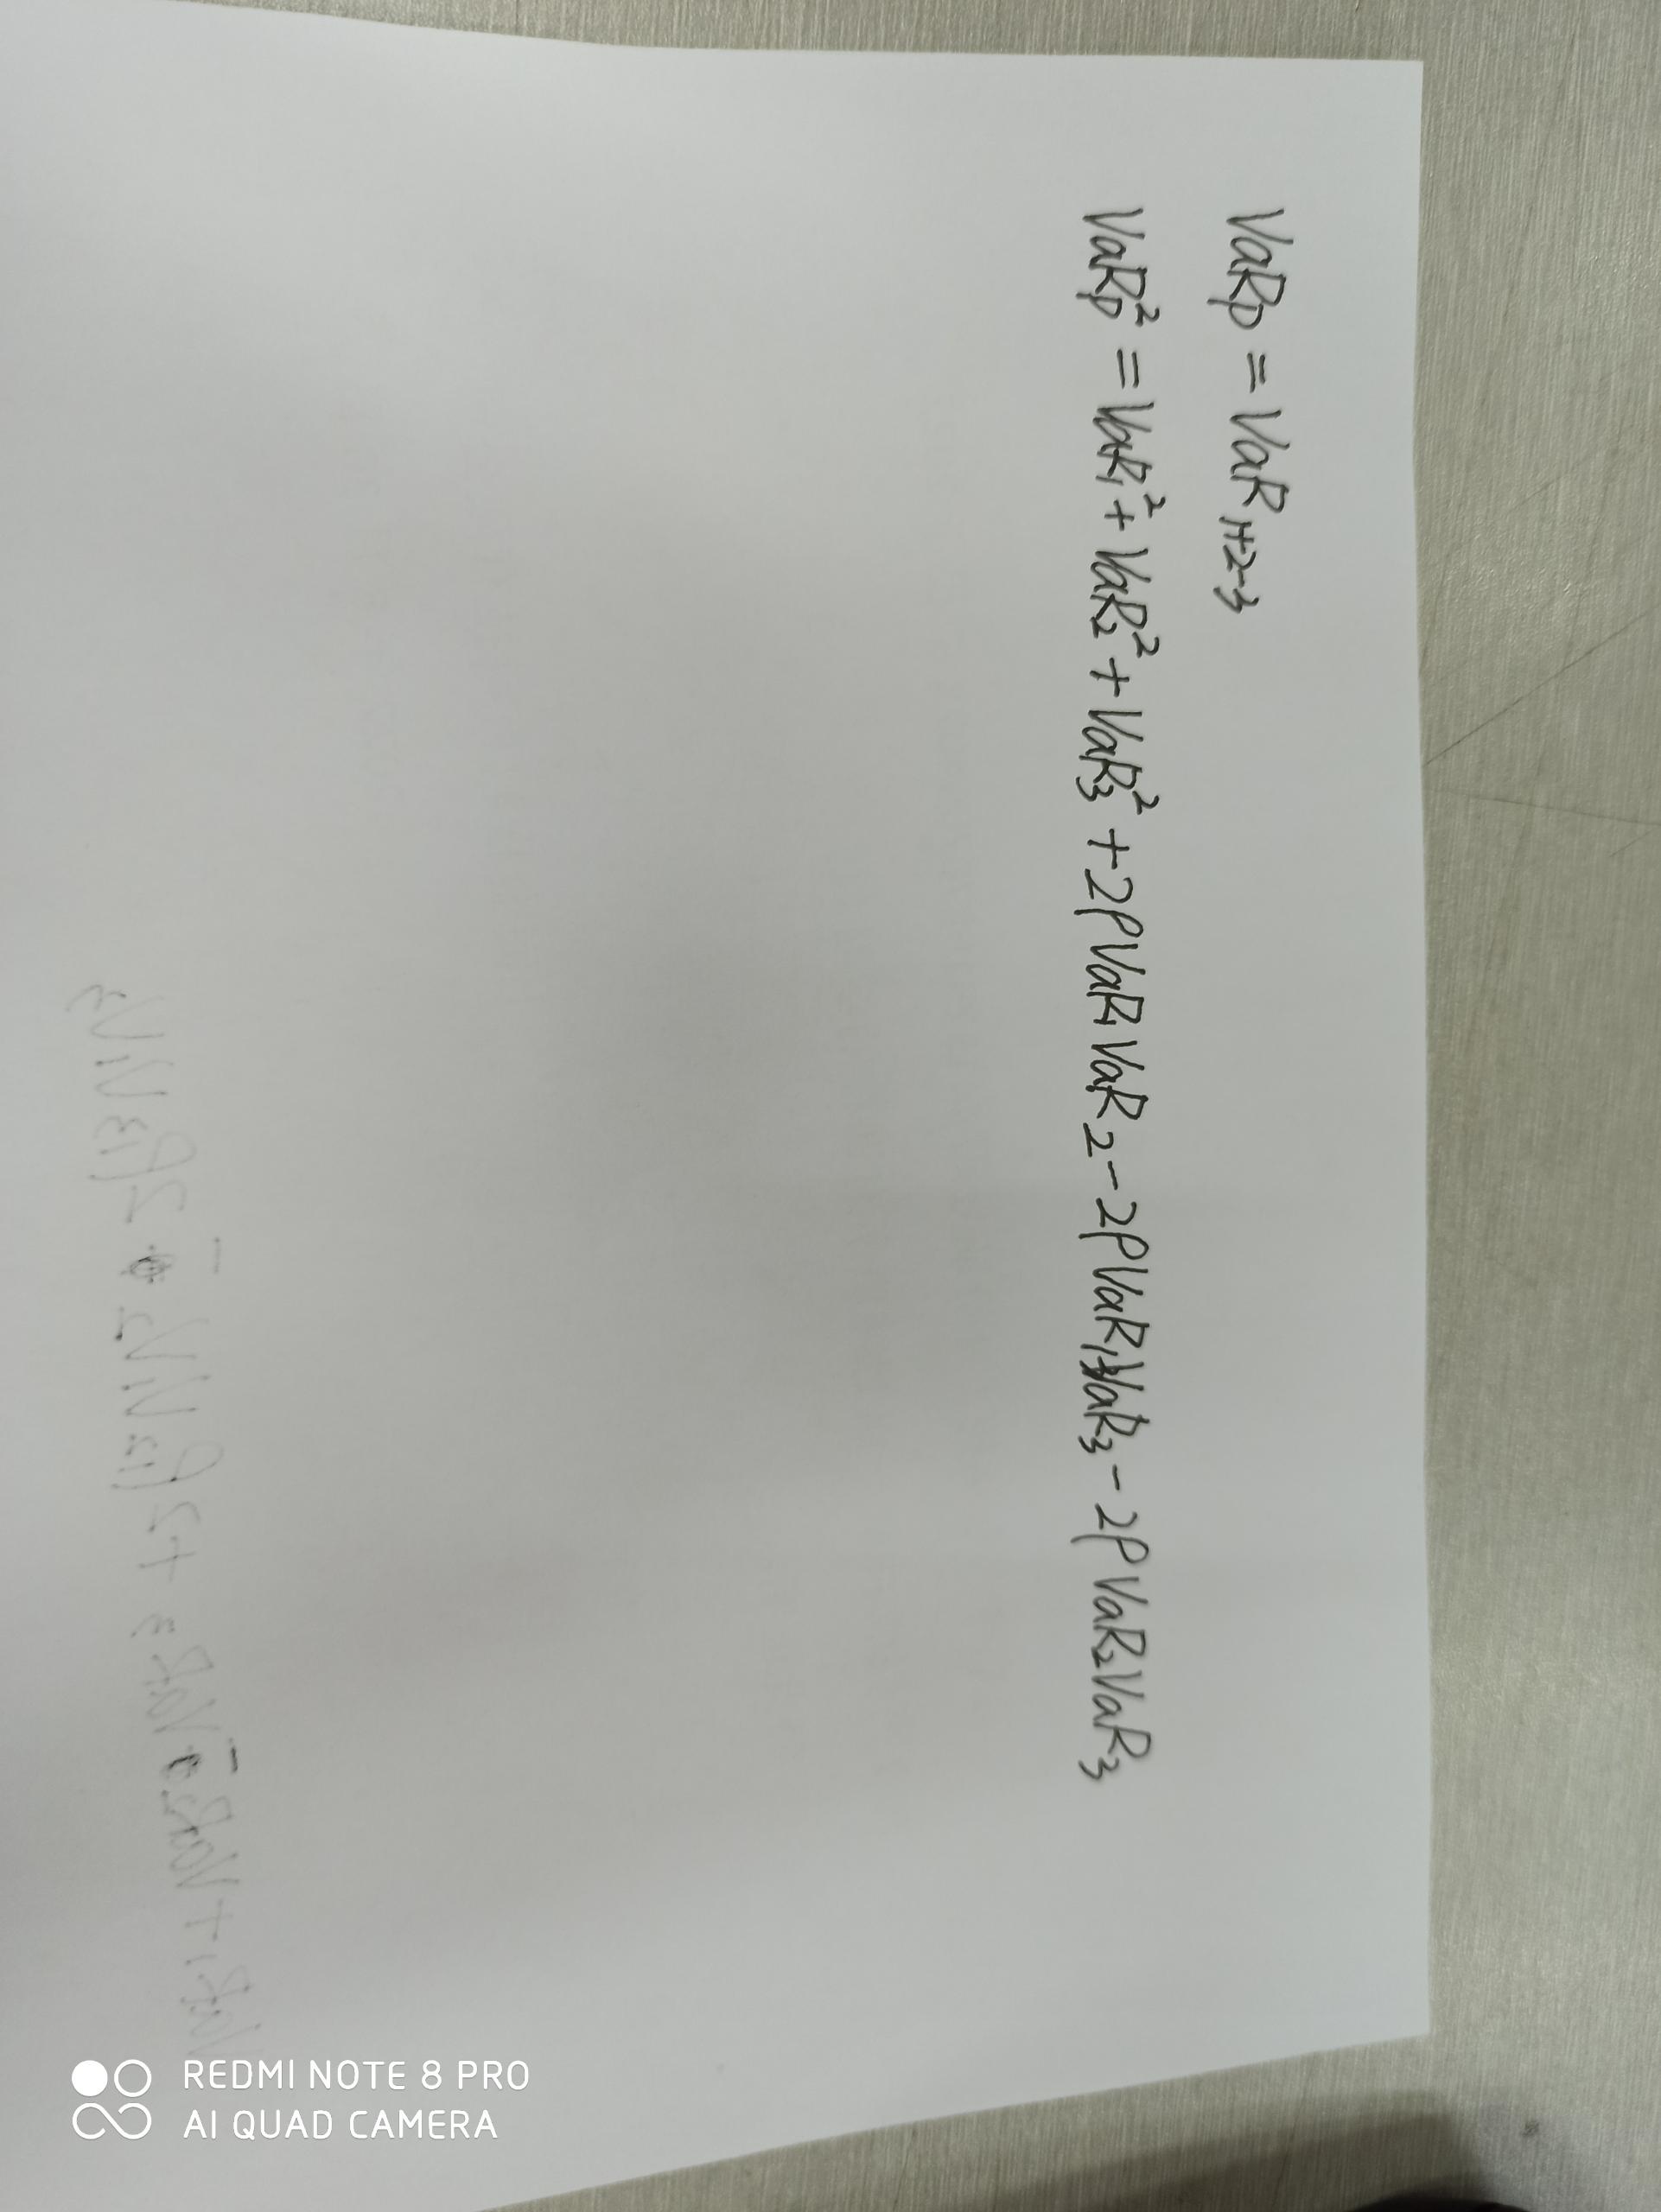 VaRp = VaR₁₊₂₋₃
VaRp² = VaR₁² + VaR₂² + VaR₃² + 2ρVaR₁VaR₂ - 2ρVaR₁VaR₃ - 2ρVaR₂VaR₃
REDMI NOTE 8 PRO
AI QUAD CAMERA